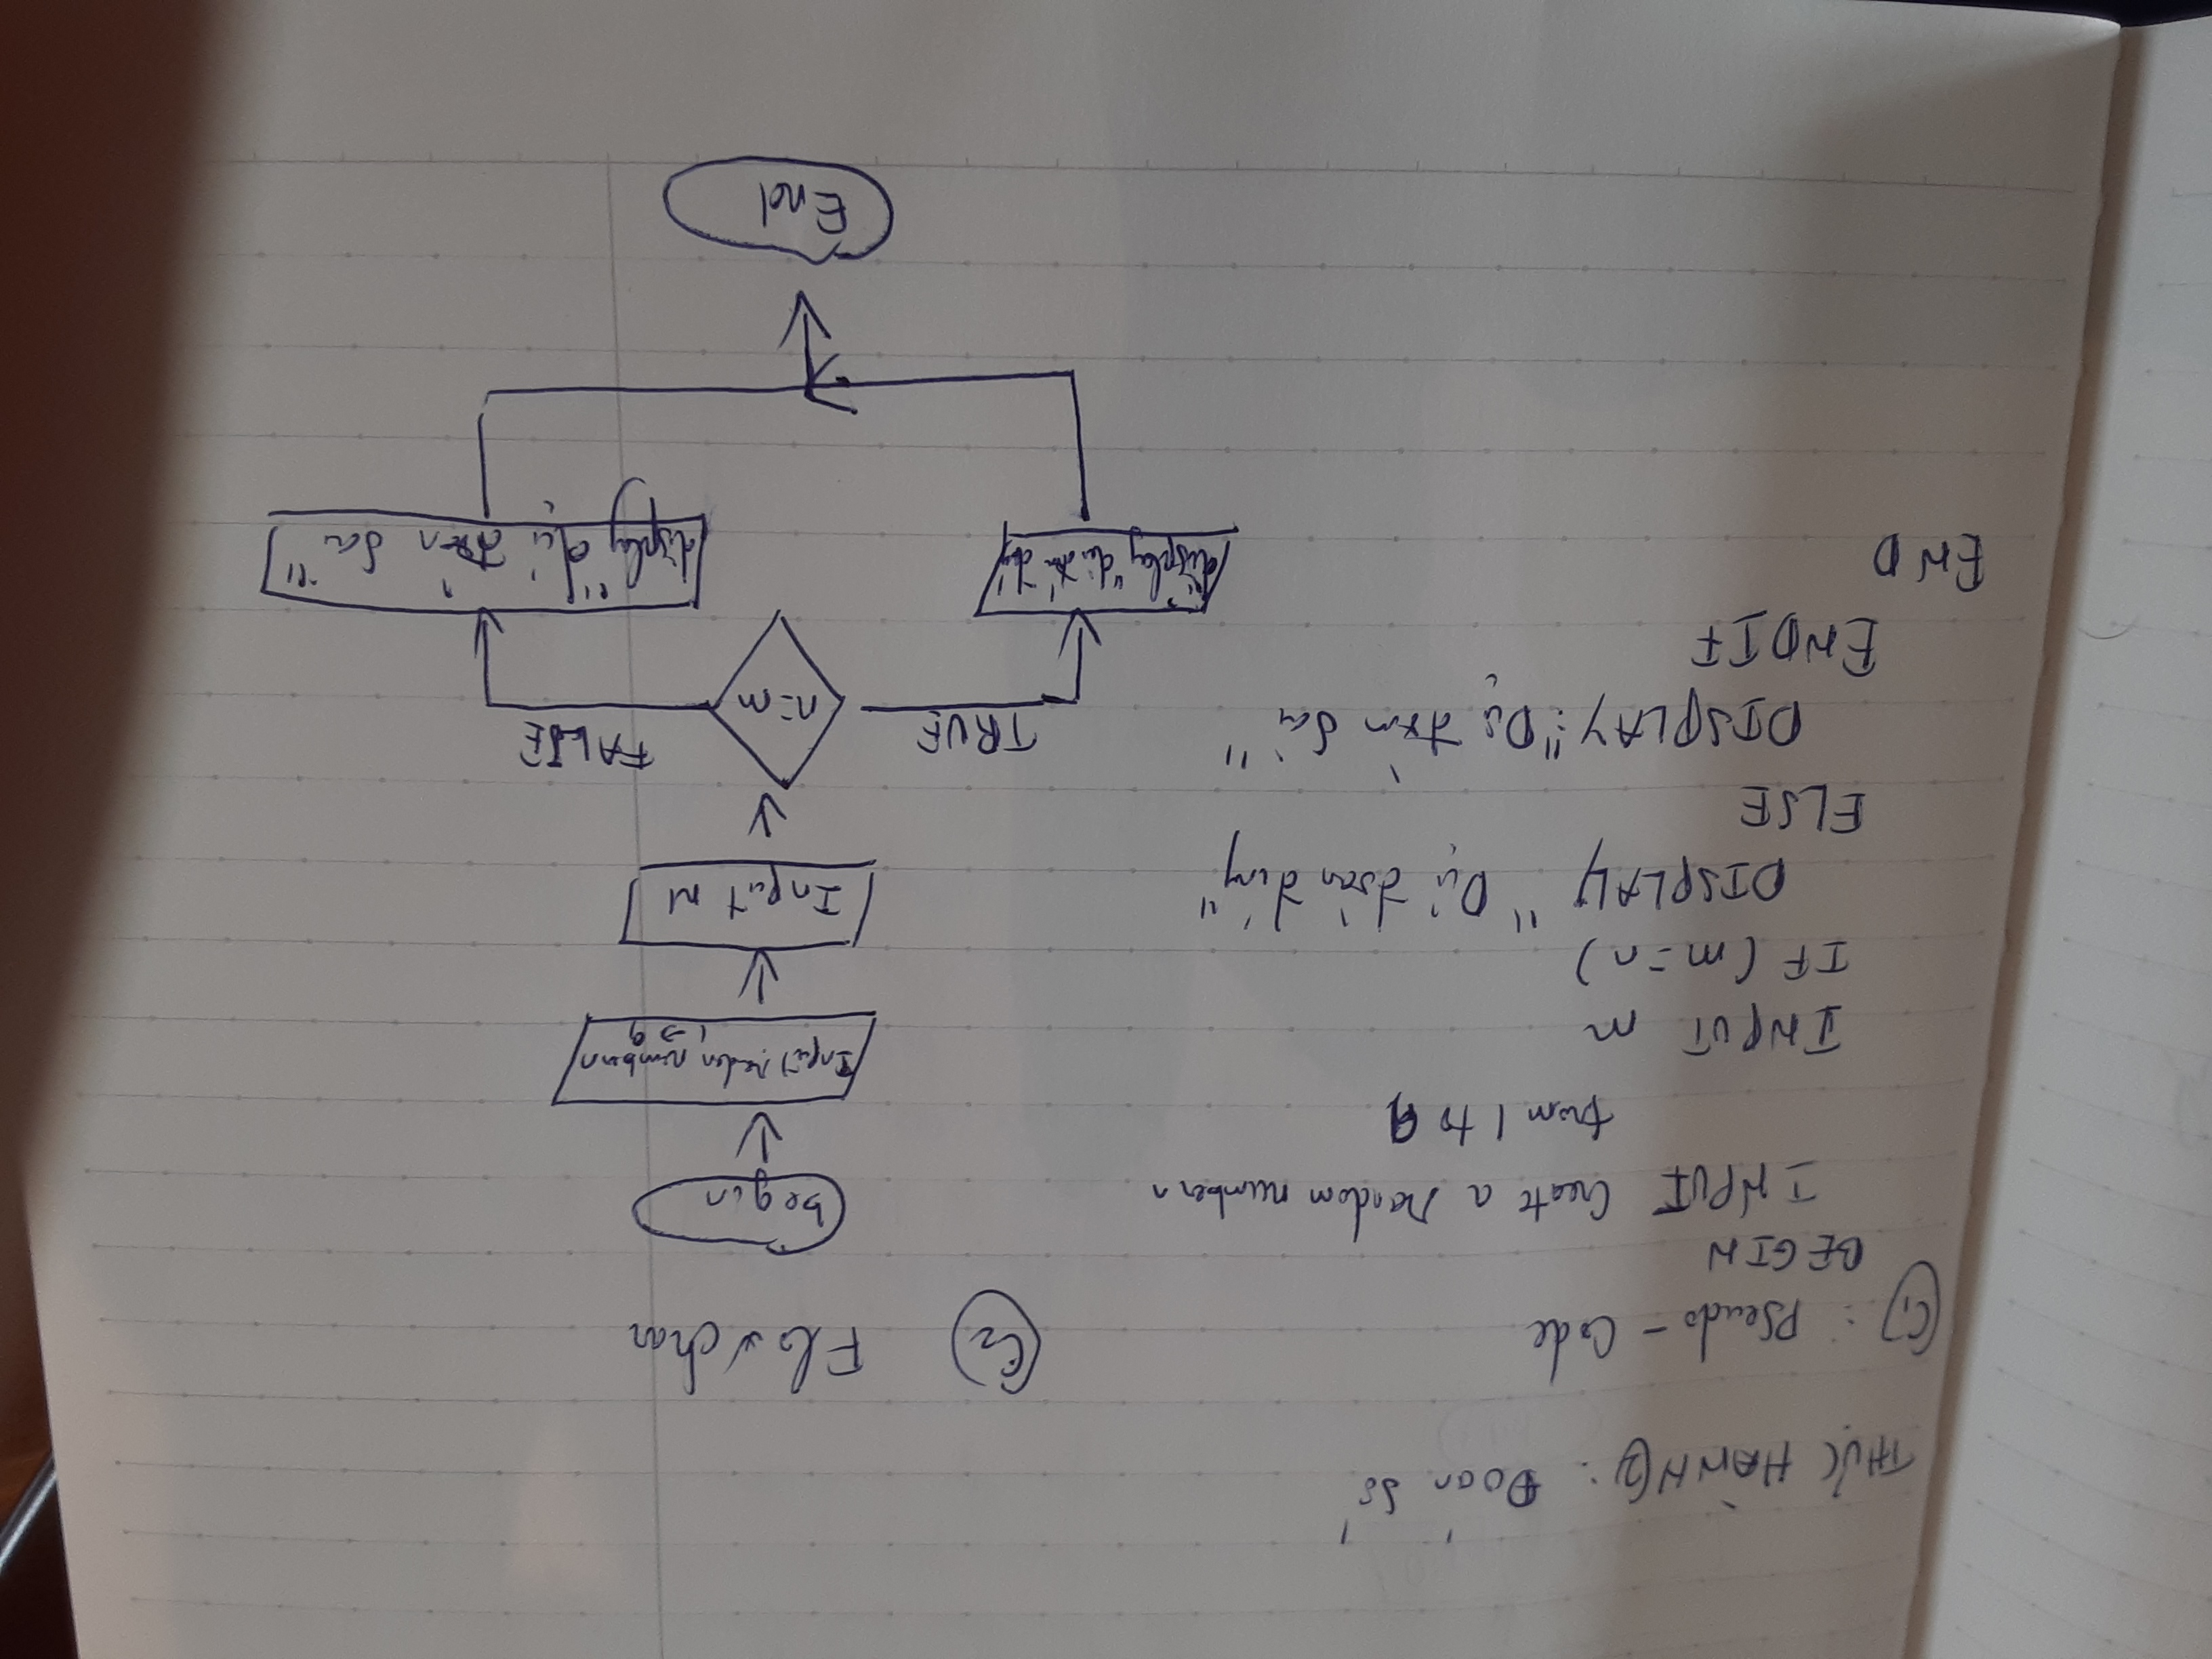 THỰC HÀNH 2: Đoán số
C1: PSeudo - Code
BEGIN
INPUT Create a random number n
from 1 to 9
INPUT m
IF (m=n)
DISPLAY "Dự đoán đúng"
ELSE
DISPLAY: "Dự đoán sai"
ENDIF
END
C2 Flowchar
begin
Input number n
1 => 9
Input M
n=m
TRUE
FALSE
display "dự đoán
display "dự đoán sai"
End